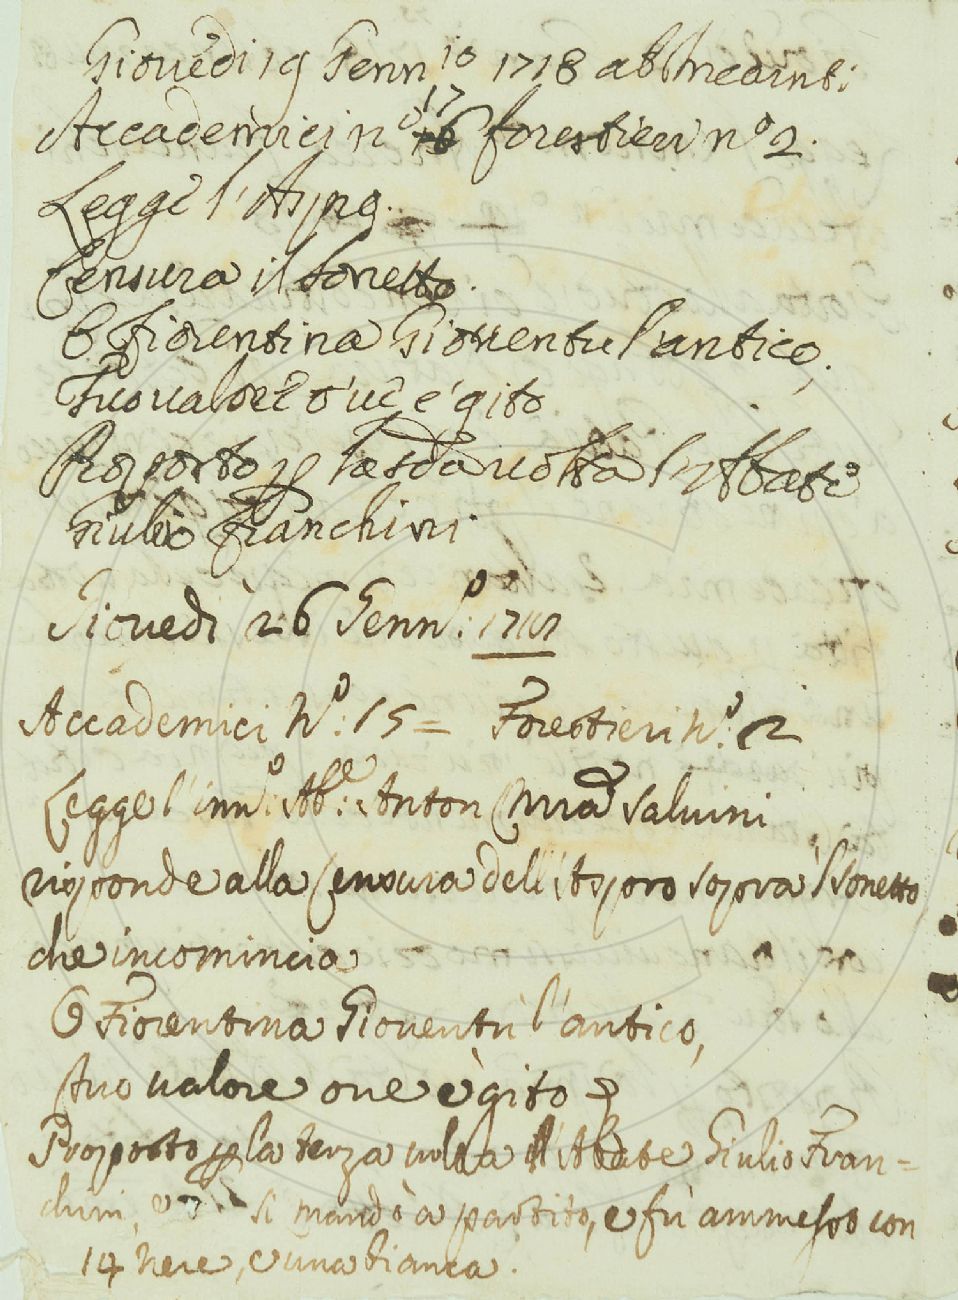 Giovedi 19 Genn.io 1718 ab Incarnt:
Accademici n.o 17 forestieri n.o 2.
Legge l'Aspro.
Censura il sonetto.
O fiorentina Gioventù l'antico,
Tuo valore ov'è gito
Proposto p la 2da volta l'Abbate
Giulio Franchini
Giovedì 26 Genn.o: 1717
Accademici N.o: 15 = Forestieri N.o: 2
Legge l'inn.o: Ab.e: Anton Mria Salvini
risponde alla Censura dell'Aspro sopra 'l sonetto
che incomincia
O Fiorentina Gioventù l'antico,
Tuo valore ove è gito
Proposto p la terza volta l'Abbate Giulio Fran=
chini, e si mandò a partito, e fù ammesso con
14 nere, e una bianca.